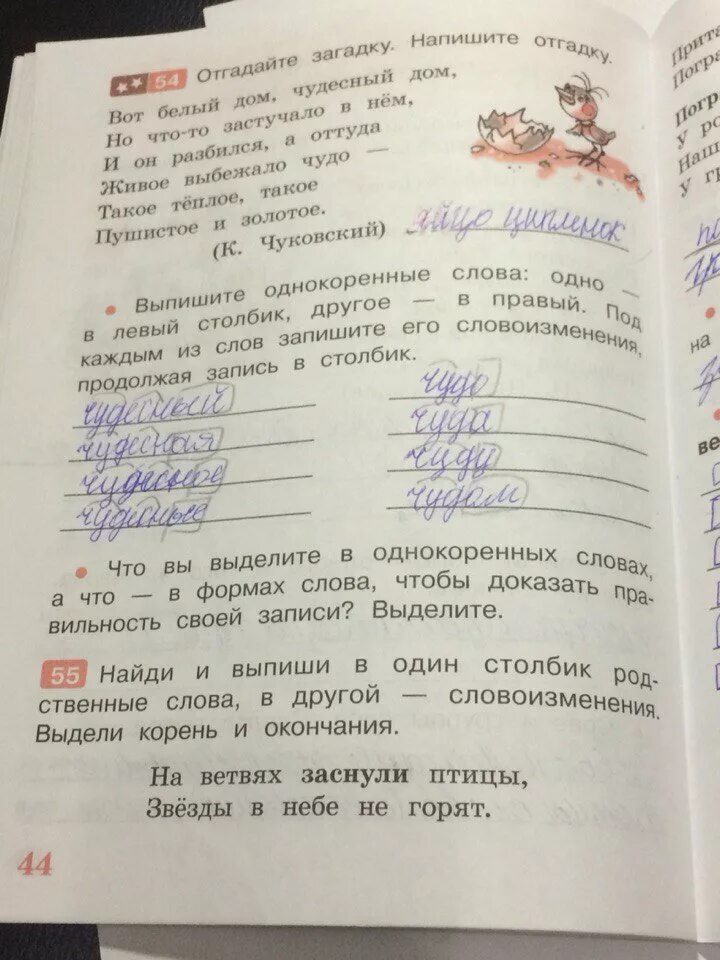 54 Отгадайте загадку. Напишите отгадку.
Вот белый дом, чудесный дом,
Но что-то застучало в нём,
И он разбился, а оттуда
Живое выбежало чудо —
Такое тёплое, такое
Пушистое и золотое.
(К. Чуковский)
яйцо ципленок
• Выпишите однокоренные слова: одно —
в левый столбик, другое — в правый. Под
каждым из слов запишите его словоизменения,
продолжая запись в столбик.
чудесный чудо
чудесная чуда
чудесное чуду
чудесные чудом
• Что вы выделите в однокоренных словах,
а что — в формах слова, чтобы доказать пра-
вильность своей записи? Выделите.
55 Найди и выпиши в один столбик род-
ственные слова, в другой — словоизменения.
Выдели корень и окончания.
На ветвях заснули птицы,
Звёзды в небе не горят.
44
Погра
Погр
у ро
Наш
у г
на
ве